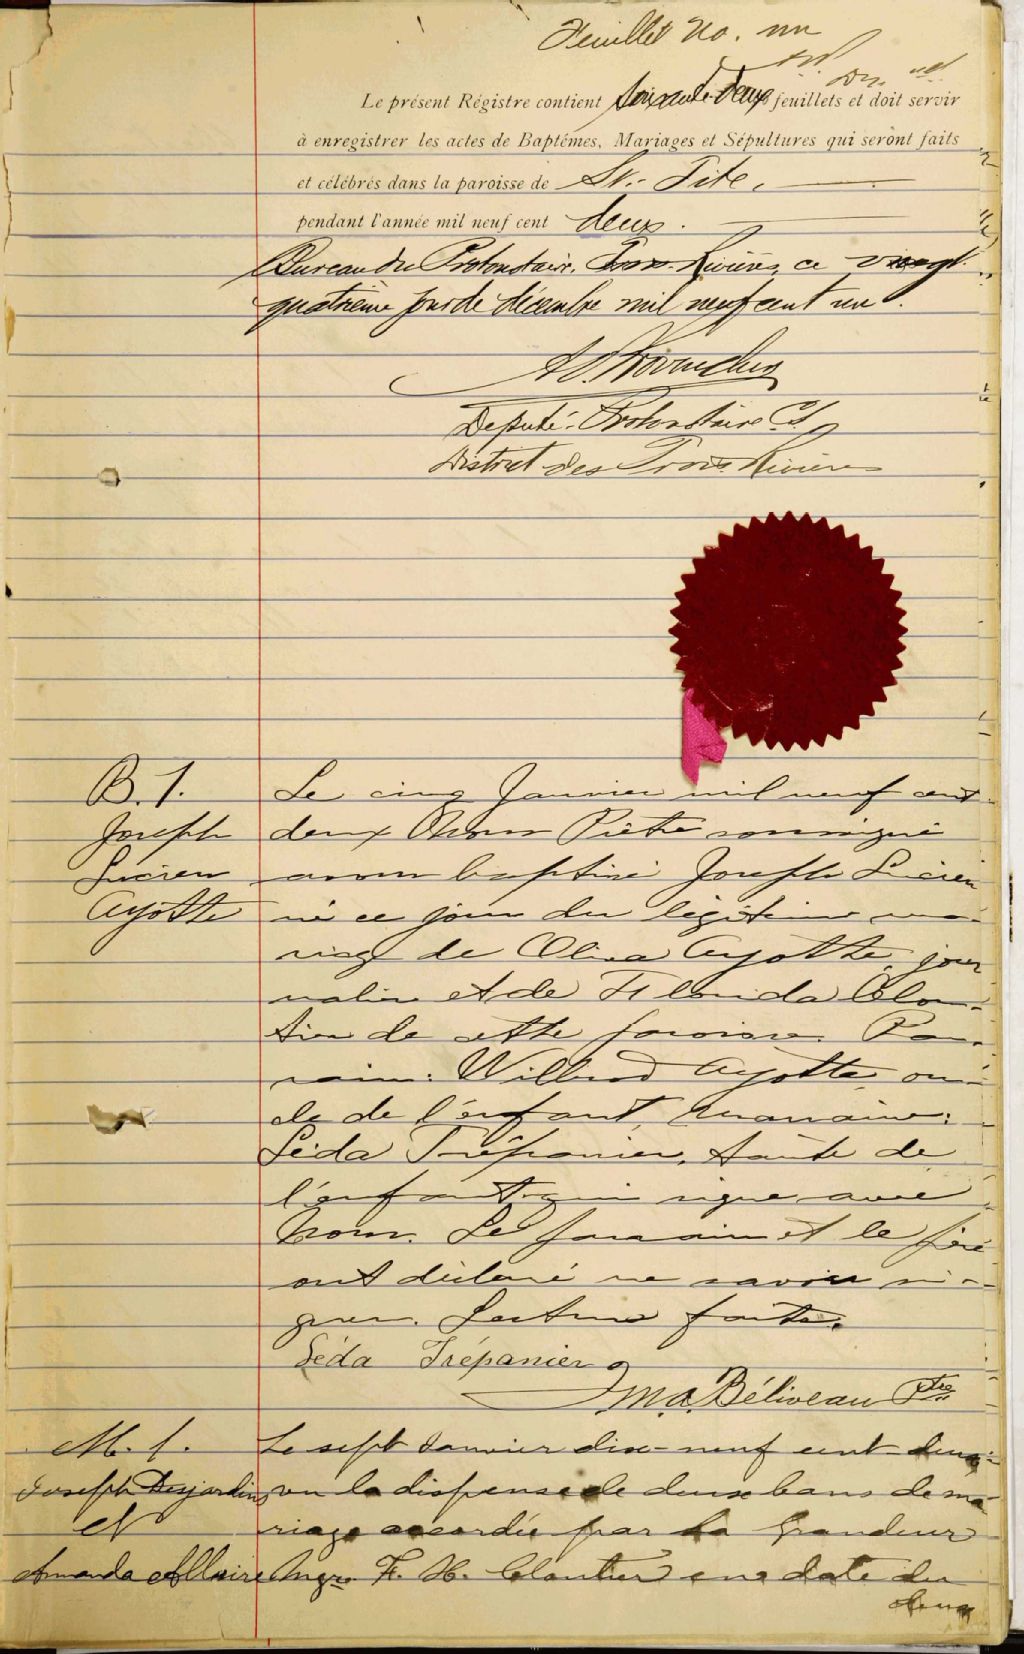 Feuillet No. un
Le présent Régistre contient soixante-deux feuillets et doit servir
à enregistrer les actes de Baptêmes, Mariages et Sépultures qui seront faits
et célébrés dans la paroisse de St.-Tite,
pendant l'année mil neuf cent deux.
Bureau du Protonotaire, Trois-Rivières, ce vingt-
quatrième jour de décembre mil neuf cent un.
Député-Protonotaire C. S.
District des Trois-Rivières
B. 1.
Joseph
Lucien
Ayotte
Le cinq Janvier mil neuf cent
deux Nous Prêtre soussigné
avons baptisé Joseph Lucien
né ce jour du légitime ma-
riage de Oliva Ayotte, jour
nalier et de Florida Clou-
tier de cette paroisse. Par-
rain: Wilbrod Ayotte, on-
cle de l'enfant, marraine:
Léda Trépanier, tante de
l'enfant qui signe avec
Nous. Le parrain et le père
ont déclaré ne savoir si-
gner. Lecture faite.
Léda Trépanier
J. M. A. Béliveau Ptre
M. 1.
Joseph Desjardins
et
Amanda Allaire
Le sept Janvier dix-neuf cent-deux
vu la dispense de deux bans de ma-
riage accordée par Sa Grandeur
Mgr. F. X. Cloutier en date du
deux